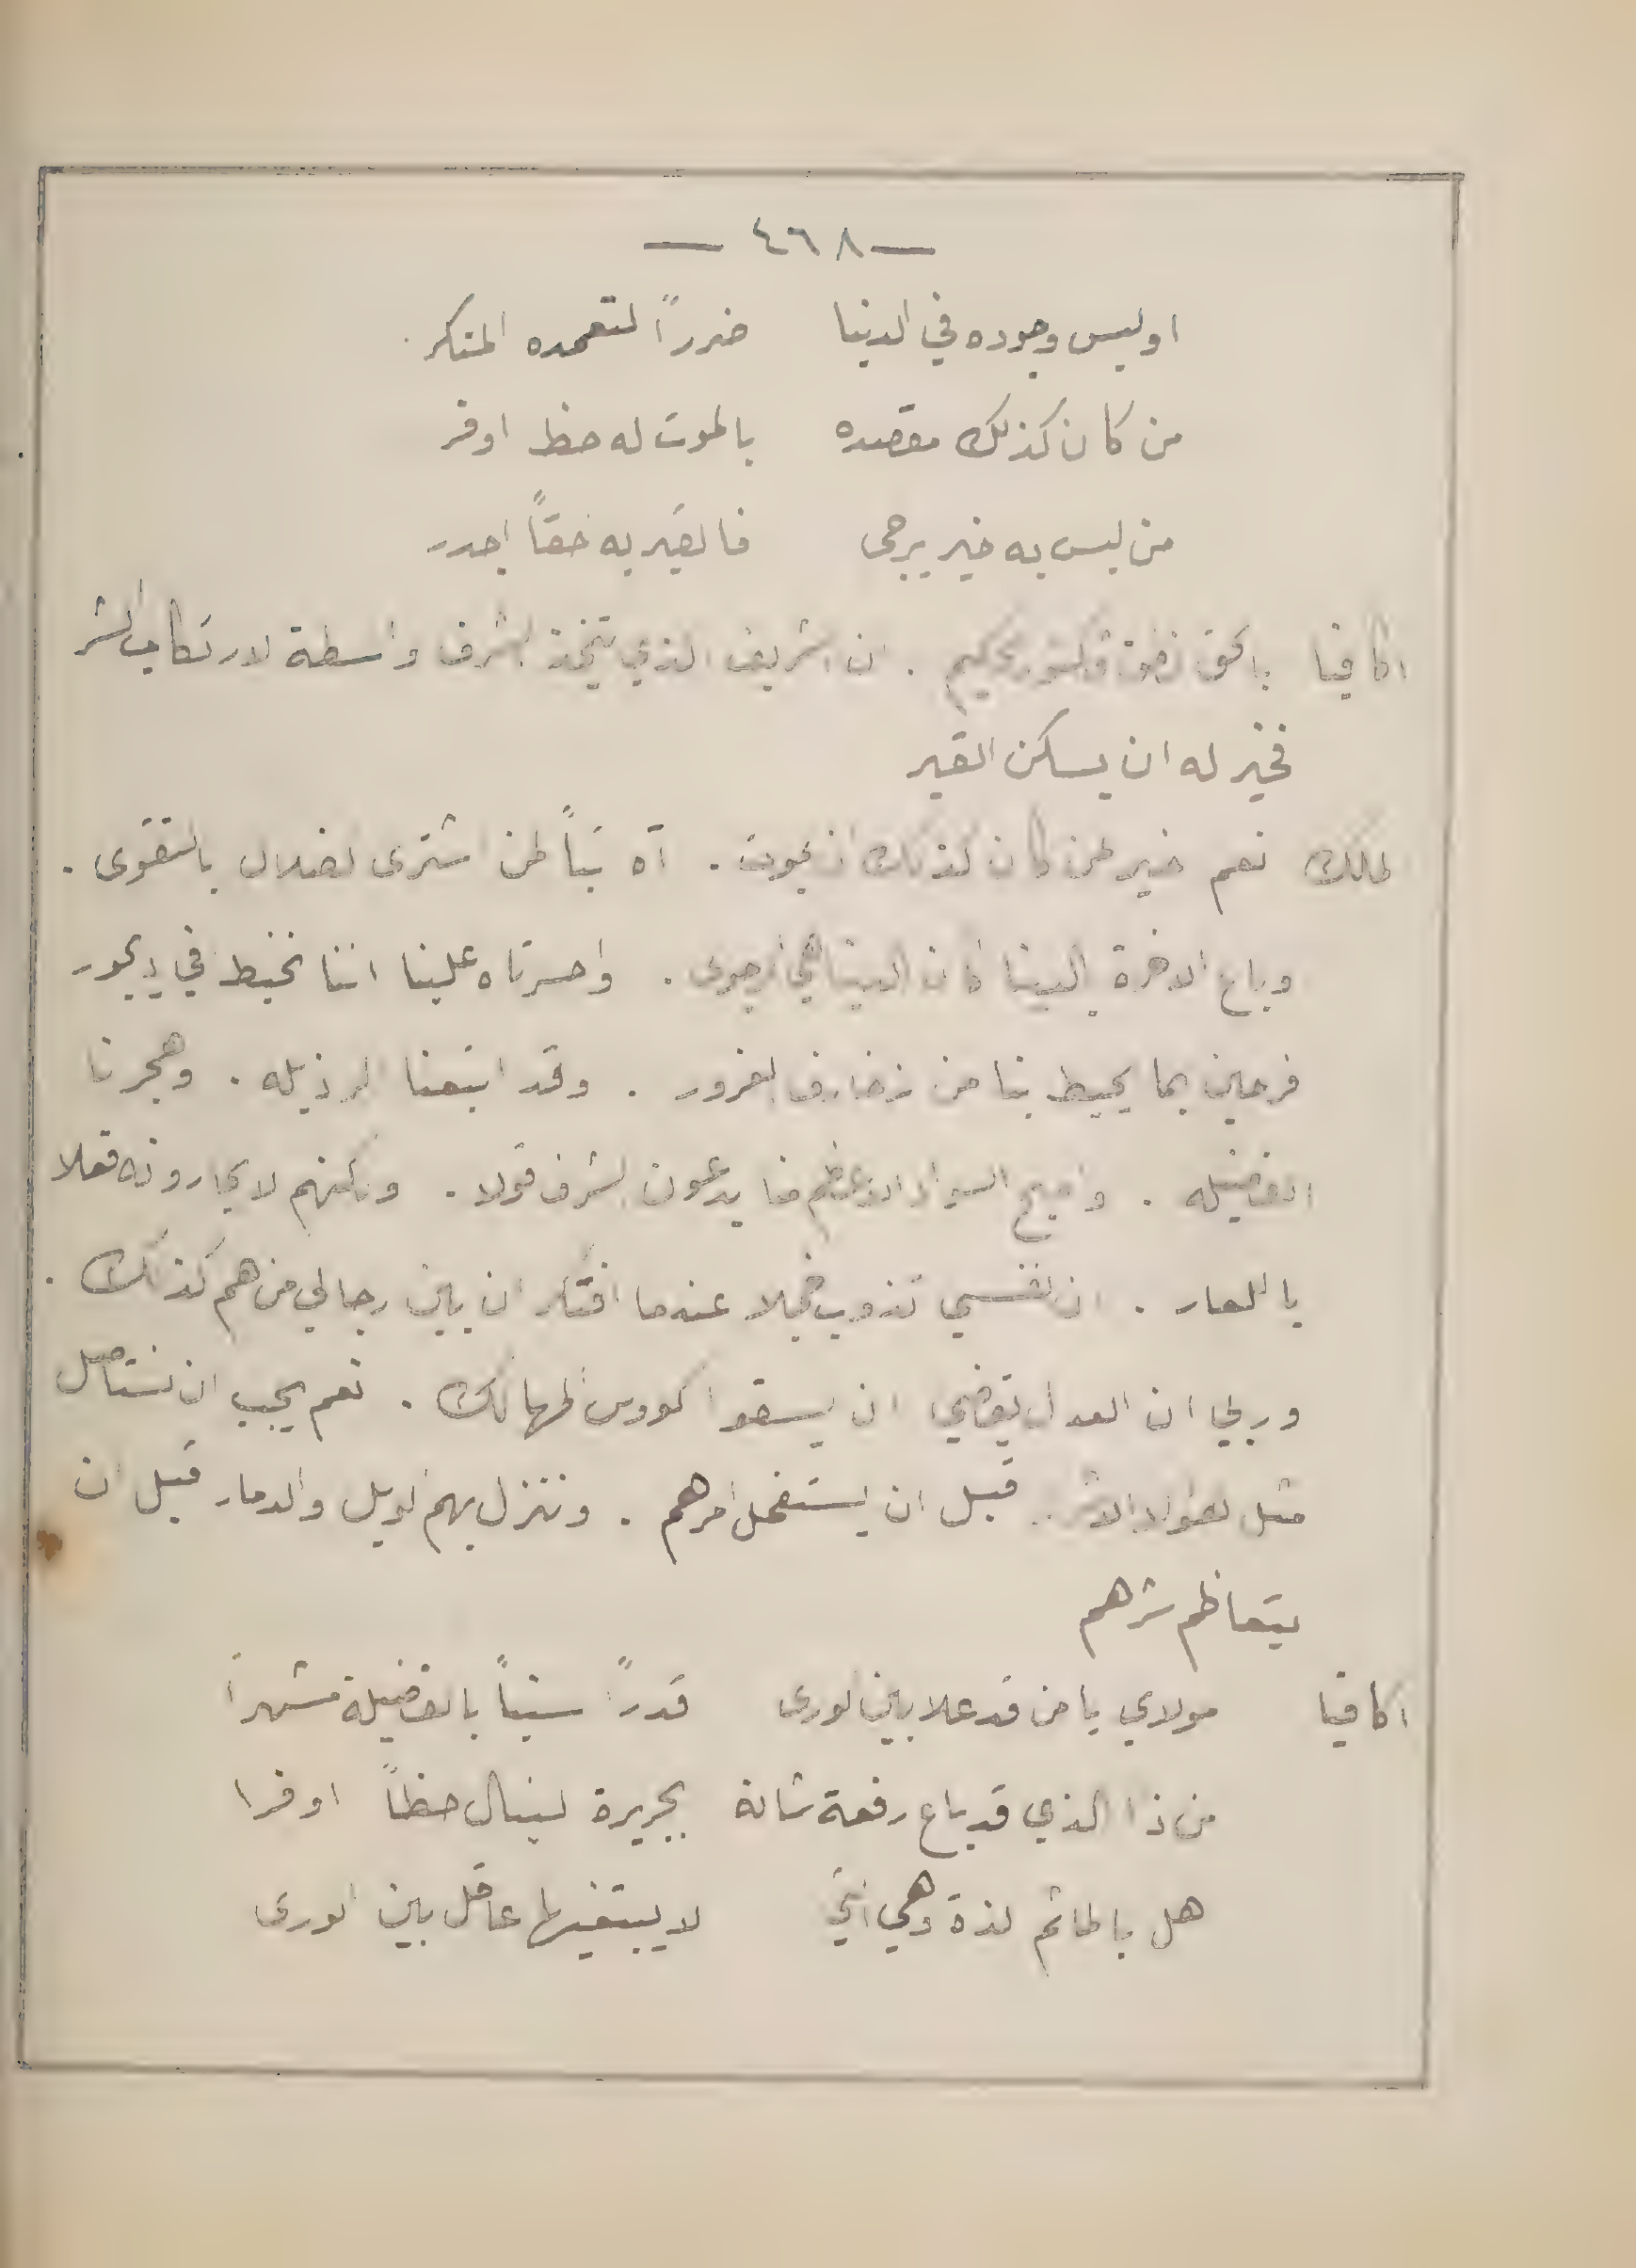 — ٤٦٨ —
اوليس وجوده في الدنيا ضرراً لتعمده المنكر
من كان كذلك مقصده بالموت له حظ اوفر
من ليس به خير يرجى فالقبر به حقاً اجدر
اكافيا بالحق نطقت . ان الشريف الذي يتخذ الشرف واسطة لارتكاب الشر
فخير له ان يسكن القبر
الملك نعم خير لمن كان كذلك ان يموت . آه تباً لمن اشترى الضلال بالتقوى .
وباع الاخرة بالدنيا كان الدنيا هي . واحسرتاه علينا اننا نخبط في ديجور
فرحين بما يحيط بنا من زخارف الغرور . وقد اتبعنا الرذيله . وهجرنا
الفضيله . واصبح السواد الاعظم منا يدعون الشرف قولا . ولكنهم لا يجارونه فعلا
يا للعار . ان نفسي تذوب خجلا عندما افتكر ان بين رجالي من هم كذلك .
وربي ان العدل يقضي ان يسقوا كووس المهالك . نعم يجب ان نستاصل
مثل قبل ان يستفحل امرهم . وننزل بهم الويل والدمار قبل ان
يتعاظم شرهم
اكافيا مولاي يا من قد علا بين الورى قدراً سنياً بالفضيلة مشهرا
من ذا الذي قد باع رفعة شانه بجريرة لينال حظاً اوفرا
هل بالماثم لذة وهي التي لا يبتغيها عاقل بين الورى